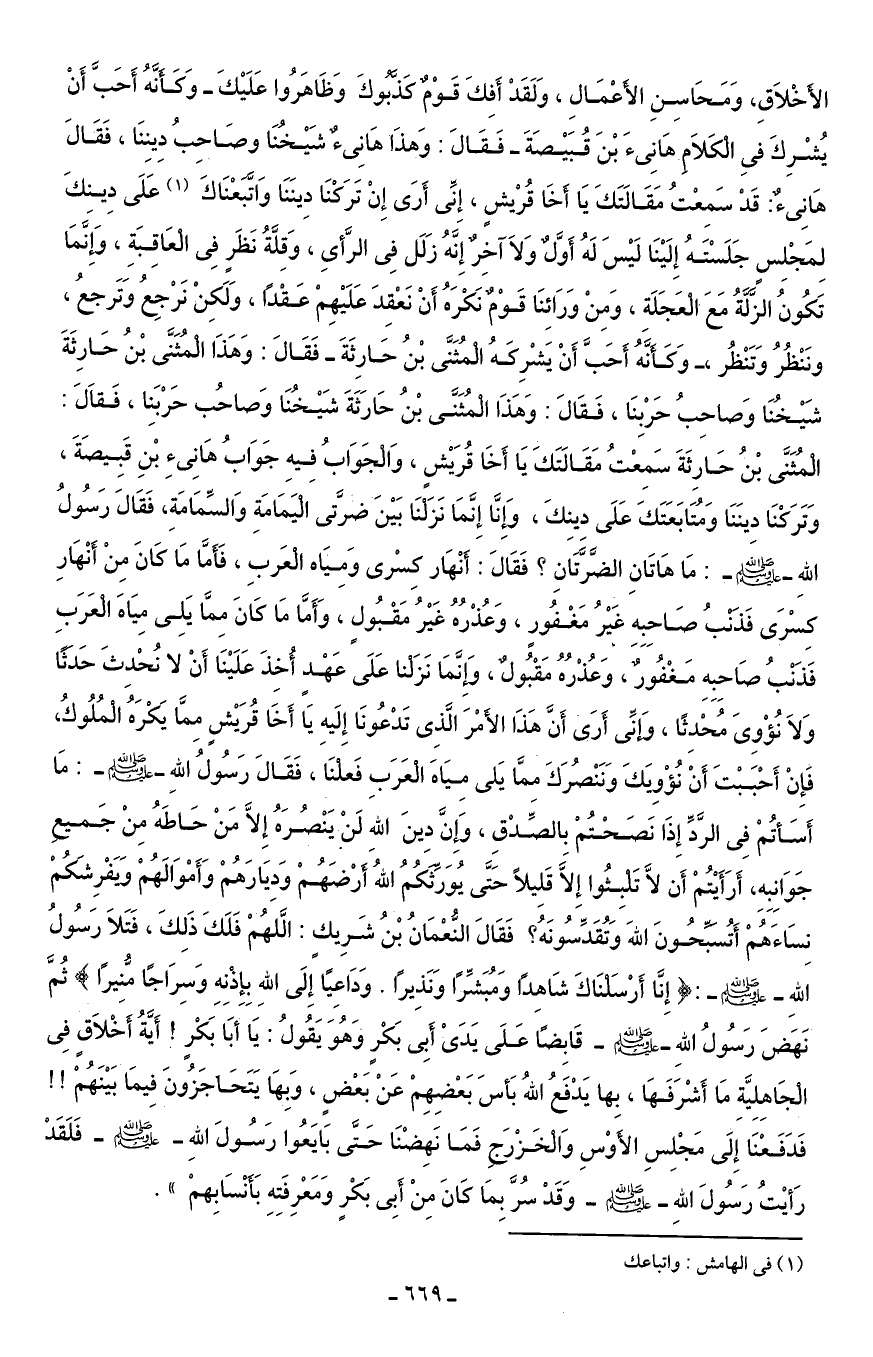 الأَخْلاَقِ، وَمَحَاسِنِ الأَعْمَالِ ، وَلَقَدْ أَفِكَ قَوْمٌ كَذَّبُوكَ وَظَاهَرُوا عَلَيْكَ ـ وَكَأَنَّهُ أَحَبَّ أَنْ
يُشْرِكَ فِى الْكَلاَمِ هَانِىءَ بْنَ قُبَيْصَةَ ـ فَقَالَ : وَهذَا هَانِىءٌ شَيْخُنَا وصَاحِبُ دِينِنَا ، فَقَالَ
هَانِىءٌ: قَدْ سَمِعْتُ مَقَالَتَكَ يَا أَخَا قُرَيْشٍ ، إِنِّى أَرَى إِنْ تَرَكْنَا دِينَنَا وَاتَّبَعْنَاكَ (١) عَلَى دِينِكَ
لِمَجْلِسٍ جَلَسْتَهُ إِلَيْنَا لَيْسَ لَهُ أَوَّلٌ وَلاَ آخِرٌ إِنَّهُ زَلَل فِى الرَّأىِ ، وَقِلَّةُ نَظَرٍ فِى الْعَاقِبَةِ ، وَإِنَّمَا
تَكُونُ الزَّلَّةُ مَعَ الْعَجَلَةِ ، وَمِنْ وَرَائِنَا قَوْمٌ نَكْرَهُ أَنْ نَعْقِدَ عَلَيْهِمْ عَقْدًا ، وَلَكِنْ نَرْجِعُ وَتَرجِعُ ،
ونَنْظُرُ وَتَنْظُر ،ـ وَكَأَنَّهُ أَحَبَّ أَنْ يَشْرِكَهُ الْمُثَنَّى بْنُ حَارِثَةَ ـ فَقَالَ : وَهَذَا الْمُثَنَّى بْنُ حَارِثَةَ
شَيْخُنَا وَصَاحِبُ حَرْبِنَا ، فَقَالَ : وَهَذَا الْمُثَنَّى بْنُ حَارَثَةَ شَيْخُنَا وَصَاحِبُ حَرْبِنَا ، فَقاَلَ :
الْمُثَنَّى بْنُ حَارِثَةَ سَمِعْتُ مَقَالَتَكَ يَا أَخَا قُرَيْشٍ ، وَالْجَوَابُ فِيهِ جَوَابُ هَانِىءِ بْنِ قَبِيصَةَ ،
وَتَرَكْنَا دِينَنَا وَمُتَابَعَتَكَ عَلَى دِينِكَ ، وَإِنَّا إِنَّمَا نَزَلْنَا بَيْنَ ضرَّتَى الْيَمَامَةِ وَالسِّمَامَةِ، فَقَالَ رَسُولُ
اللهِ ـ ﷺ ـ : مَا هَاتَانِ الضَّرَّتَانِ ؟ فَقَالَ : أَنْهَارِ كِسْرَى وَمِيَاهِ الْعَرَبِ ، فَأَمَّا مَا كَانَ مِنْ أَنْهَارِ
كِسْرَى فَذَنْبُ صَاحِبِهِ غَيْرُ مَغْفُورٍ ، وَعُذْرُهُ غَيْرُ مَقْبُولٍ ، وَأَمَّا مَا كَانَ مِمَّا يَلِى مِيَاهَ الْعَرَبِ
فَذَنْبُ صَاحِبِهِ مَغْفُورٌ ، وَعُذْرُهُ مَقْبُولٌ ، وَإِنَّمَا نَزَلْنا عَلَى عَهْدٍ أُخِذَ عَلَيْنَا أَنْ لا نُحْدِثَ حَدَثًا
وَلاَ نُؤْوِىَ مُحْدِثًا ، وَإِنِّى أَرَى أَنَّ هَذَا الأَمْرَ الَّذِى تَدْعُونَا إِليهِ يَا أَخَا قُرَيْشٍ مِمَّا يَكْرَهُ الْمُلُوكُ،
فَإِنْ أَحْبَبْتَ أَنْ نُؤْوِيَكَ وَنَنْصُرَكَ مِمَّا يَلِى مِيَاهَ الْعَرَبِ فَعلْنَا ، فَقَالَ رَسُولُ اللهِ ـ ﷺ ـ : مَا
أَسَأتُمْ فِى الرَّدِّ إِذَا نَصَحْتُمْ بِالصِّدْقِ ، وَإِنَّ دِينَ اللهِ لَنْ يَنْصُرَهُ إِلاَّ مَنْ حَاطَهُ مِنْ جَمِيعِ
جَوَانِبِهِ، أَرَأَيْتُمْ أَن لاَّ تَلْبثُوا إِلاَّ قَلِيلاً حَتَّى يُورَثِّكُمُ اللهُ أَرْضَهُمْ وَدِيَارَهُمْ وَأَمْوَالَهُمْ وَيَفْرِشَكُمْ
نِسَاءَهُمْ أَتُسَبِّحُونَ اللهَ وَتُقَدِّسُونَهُ؟ فَقَالَ النُّعْمَانُ بْنُ شَرِيكٍ : الَّلهُمْ فَلَكَ ذَلِكَ ، فَتَلاَ رَسُولُ
اللهِ ـ ﷺ ـ :﴿ إِنَّا أَرْسَلْنَاكَ شَاهِداً وَمُبَشِّرًا وَنَذِيرًا . وَدَاعِيًا إِلَى اللهِ بِإِذْنِهِ وَسِرَاجًا مُّنِيرًا ﴾ ثُمَّ
نَهَضَ رَسُولُ اللهِ ـ ﷺ ـ قَابِضًا عَلَى يَدَىْ أَبِى بَكْرٍ وَهُوَ يَقُولُ : يَا أَبَا بَكْرٍ ! أَيَّةُ أَخْلاَقٍ فِى
الْجَاهِلِيَّةِ مَا أَشْرَفَهَا ، بِها يَدْفَعُ اللهُ بَأسَ بَعْضِهِمْ عَنْ بَعْضٍ ، وَبِهَا يَتَحَاجَزُونَ فِيمَا بَيْنَهُمْ !!
فَدَفَعْنَا إِلَى مَجْلِسِ الأَوْسِ وَالْخَزْرَجِ فَمَا نَهضْنَا حَتَّى بَايَعُوا رَسُولَ اللهِ ـ ﷺ ـ فَلَقَدْ
رَأَيْتُ رَسُولَ اللهِ ـ ﷺ ـ وَقَدْ سُرَّ بِمَا كَانَ مِنْ أَبِى بَكْرٍ وَمَعْرِفَتِهِ بِأَنْسَابِهِمْ » .
(١) فى الهامش : واتباعك
ـ ٦٦٩ ـ